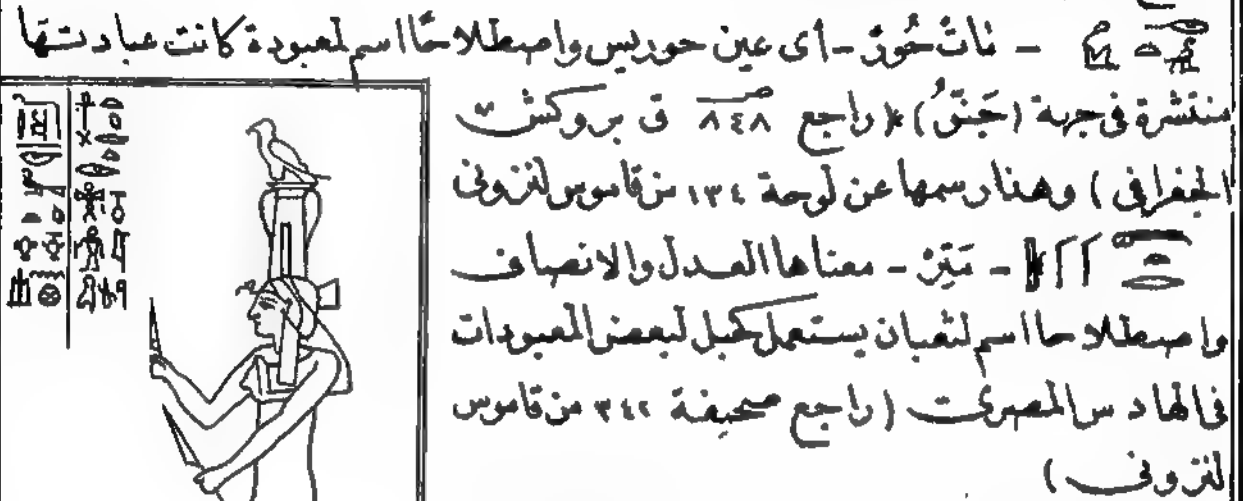 – مَاتْ حُورْ – أى عين حوريس واصطلاحًا اسم لمعبودة كانت عبادتها
منتشرة فى جهة (حَبَنُّو) (راجع صـ ٨٤٨ ق بروكش
الجغرافى) وهنا رسمها عن لوحة ١٣٤ من قاموس لنزونى
– مَتِرْ – معناها العدل والانصاف
واصطلاحا اسم لثعبان يستعمل كحبل لبعض المعبودات
فى الهادس المصرى (راجع صحيفة ٣٤٢ من قاموس
لنزونى)